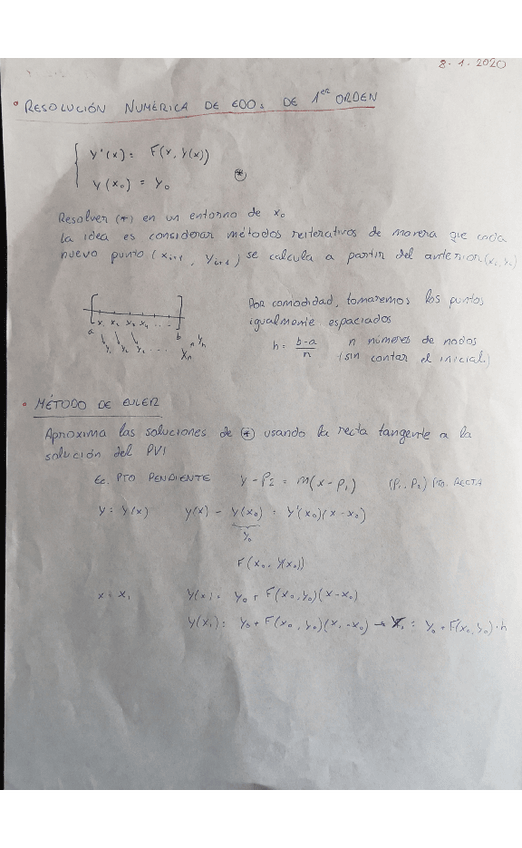 8-1-2020
• RESOLUCIÓN NUMÉRICA DE EDOs DE 1er ORDEN
y'(x) = F(x, y(x))
y(x₀) = y₀ (*)
Resolver (*) en un entorno de x₀
La idea es considerar métodos reiterativos de manera que cada
nuevo punto (xᵢ₊₁, yᵢ₊₁) se calcula a partir del anterior (xᵢ, yᵢ)
Por comodidad, tomaremos los puntos
igualmente espaciados
h = b-a/n n números de nodos
(sin contar el inicial)
a b
• MÉTODO DE EULER
Aproxima las soluciones de (*) usando la recta tangente a la
solución del PVI
Ec. PTO PENDIENTE y - P₂ = m(x - p₁) (P₁, P₂) pto. RECTA
y = y(x) y(x) - y(x₀) = y'(x₀)(x - x₀)
y₀
F(x₀, y(x₀))
x = x₁ y(x) = y₀ + F(x₀, y₀)(x - x₀)
y(x₁) = y₀ + F(x₀, y₀)(x₁ - x₀) → y₁ = y₀ + F(x₀, y₀)·h